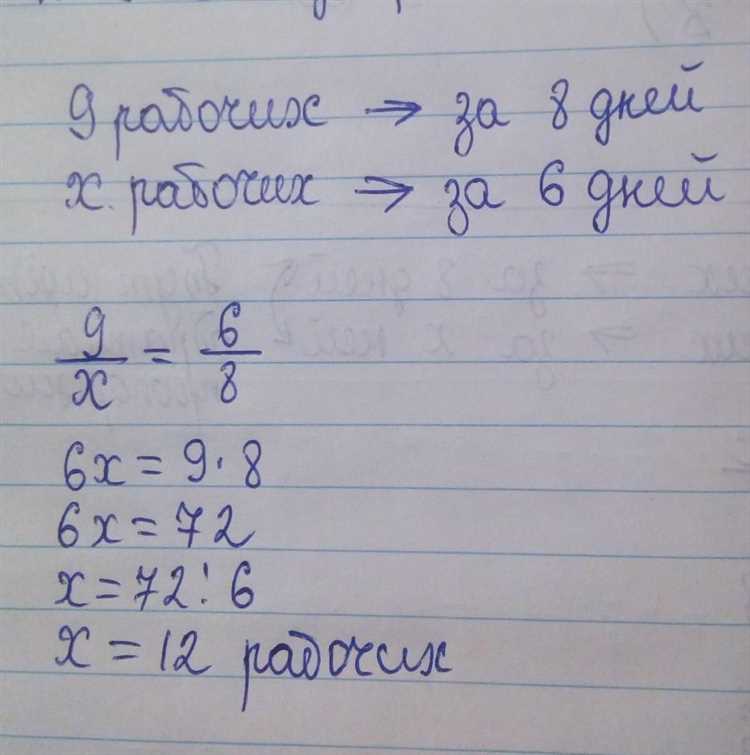 9 рабочих → за 8 дней
х. рабочих → за 6 дней
9/х = 6/8
6х = 9·8
6х = 72
х = 72 : 6
х = 12 рабочих